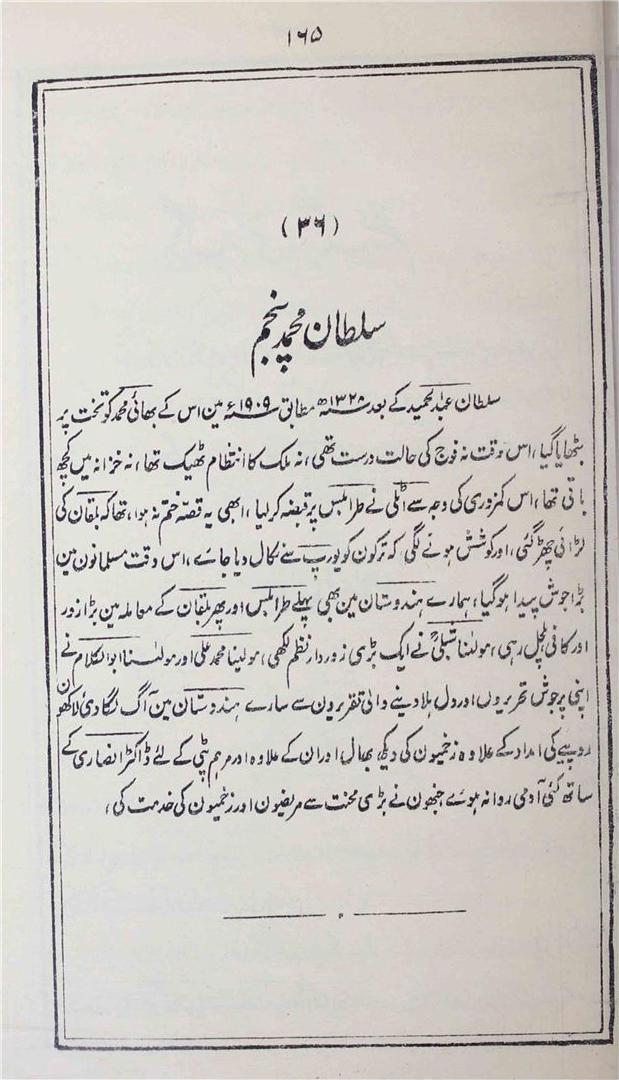 ۱۶۵
(۳۶)
سلطان محمد پنجم
سلطان عبدالحمید کے بعد ۱۳۲۸ھ مطابق ۱۹۰۹ء مین اس کے بھائی محمد کو تخت پر
بٹھایا گیا، اس وقت نہ فوج کی حالت درست تھی، نہ ملک کا انتظام ٹھیک تھا، نہ خزانہ میں کچھ
باقی تھا، اس کمزوری کی وجہ سے اٹلی نے طرابلس پر قبضہ کر لیا، ابھی یہ قصّہ ختم نہ ہوا، تھا کہ بلقان کی
لڑائی چھڑ گئی، اور کوشش ہونے لگی کہ ترکون کو یورپ سے نکال دیا جائے، اس وقت مسلمانون مین
بڑا جوش پیدا ہو گیا، ہمارے ہندوستان مین بھی پہلے طرابلس اور پھر بلقان کے معاملہ مین بڑا زور
اور کافی ہلچل رہی، مولٰنا شبلیؒ نے ایک بڑی زور دار نظم لکھی، مولینا محمد علی اور مولٰنا ابوالکلام نے
اپنی پرجوش تحریروں اور دل ہلا دینے والی تقریرون سے سارے ہندوستان مین آگ لگا دی، لاکھون
روپیے کی امداد کے علاوہ زخمیون کی دیکھ بھال اور ان کے علاوہ اور مرہم پٹی کے لئے ڈاکٹر انصاری کے
ساتھ کئی آدمی روانہ ہوے جنھون نے بڑی محنت سے مریضون اور زخمیون کی خدمت کی،